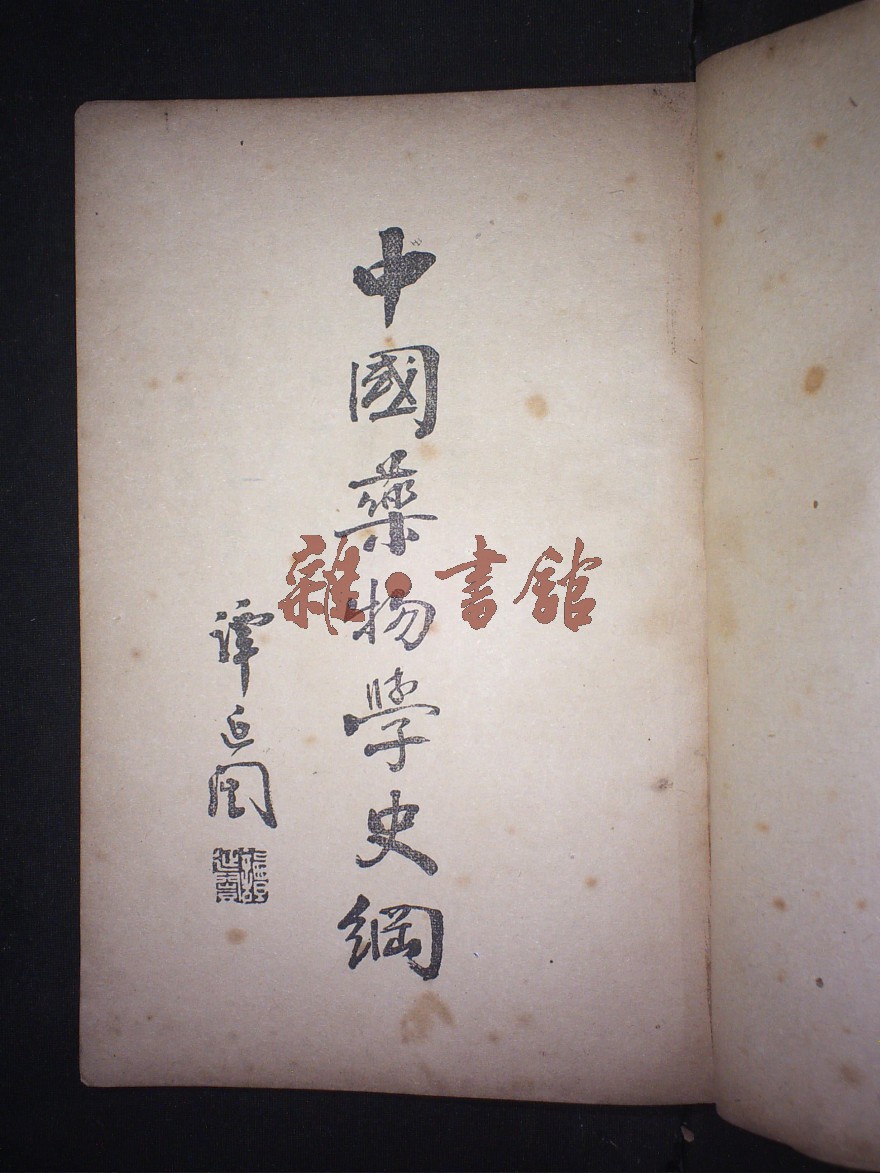 中國藥物學史綱
譚延闓
雜·書館